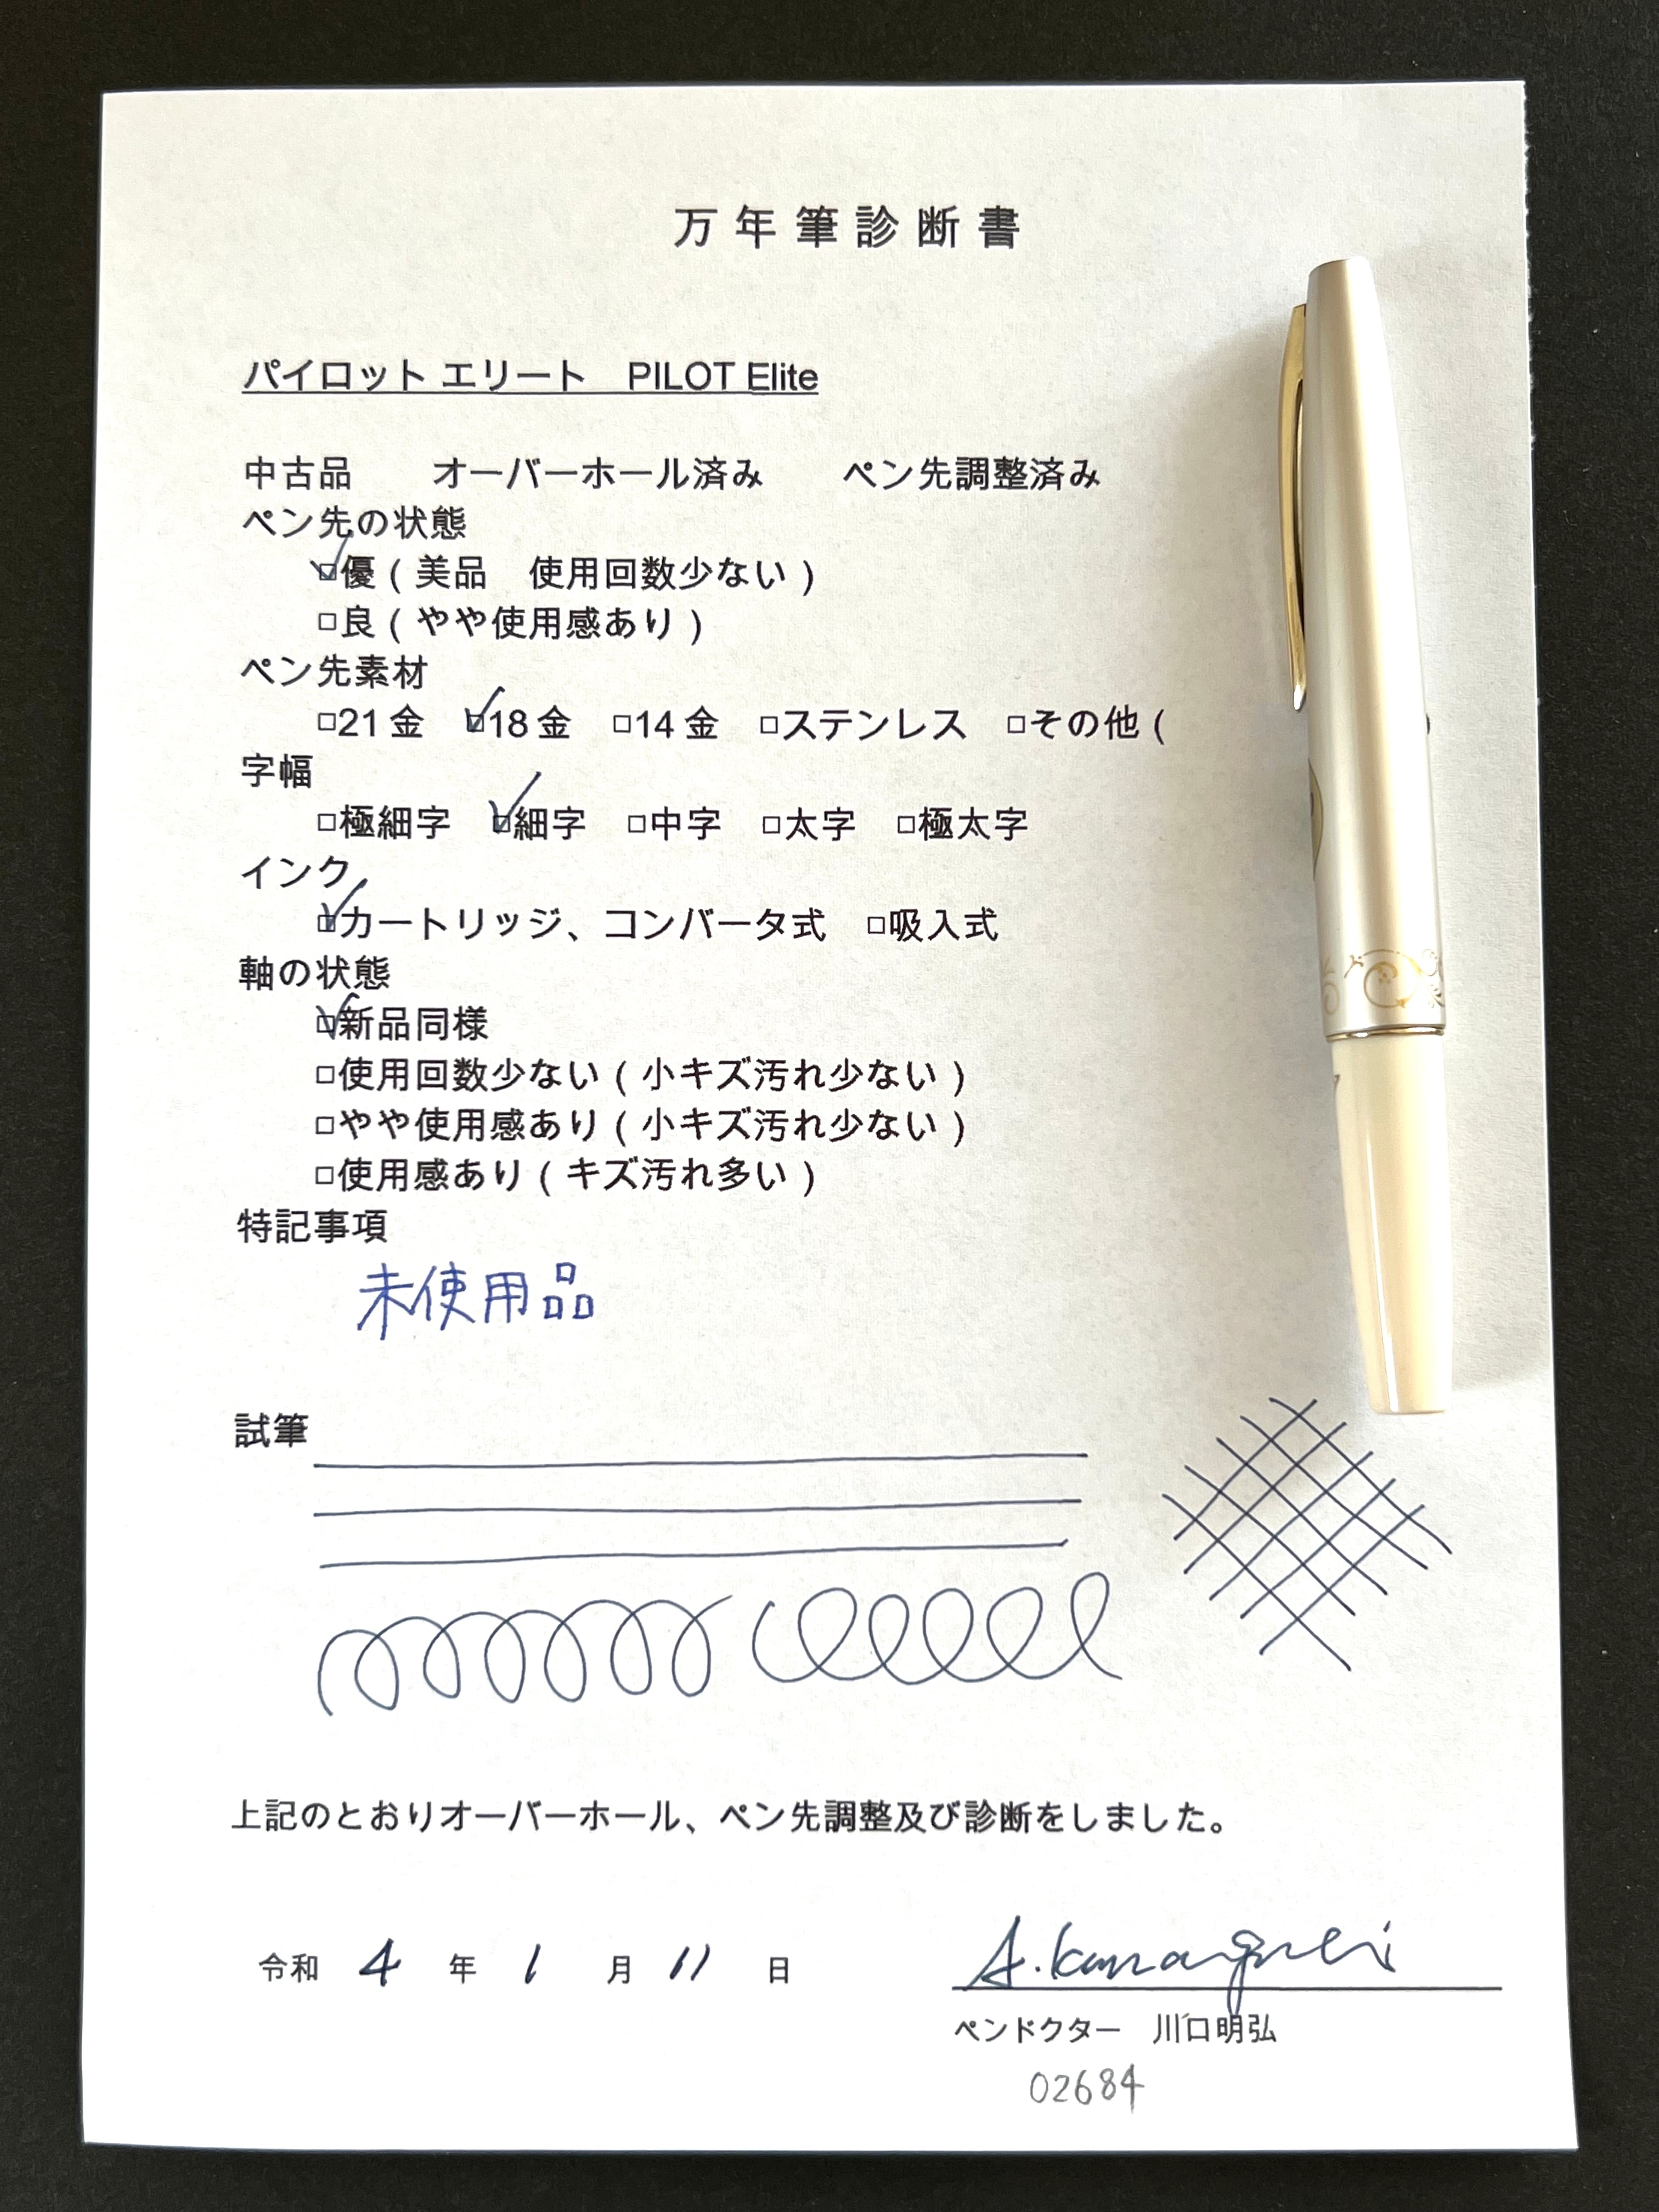 万年筆診断書
パイロット エリート　PILOT Elite
中古品　オーバーホール済み　ペン先調整済み
ペン先の状態
☑優（美品　使用回数少ない）
□良（やや使用感あり）
ペン先素材
□21金　☑18金　□14金　□ステンレス　□その他（
字幅
□極細字　☑細字　□中字　□太字　□極太字
インク
☑カートリッジ、コンバータ式　□吸入式
軸の状態
☑新品同様
□使用回数少ない（小キズ汚れ少ない）
□やや使用感あり（小キズ汚れ少ない）
□使用感あり（キズ汚れ多い）
特記事項
未使用品
試筆
上記のとおりオーバーホール、ペン先調整及び診断をしました。
令和 4 年 1 月 11 日
A.Kawaguchi
ペンドクター　川口明弘
02684